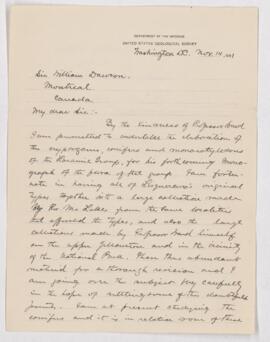 DEPARTMENT OF THE INTERIOR
UNITED STATES GEOLOGICAL SURVEY
Washington D.C. Nov. 14, 1891
Sir William Dawson.
Montreal
Canada
My dear Sir:-
By the kindness of Professor Ward
I am permitted to undertake the elaboration of
the cryptogams, conifers and monocotyledons
of the Laramie Group, for his forthcoming mono-
graph of the flora of the group. I am fortu-
nate in having all of Lesquereux's original
types together with a large collection made
by Rev. Mr. Lakes from the same localities
that afforded the types, and also the large
collections made by Professor Ward himself
on the upper Yellowstone and in the vicinity
of the National Park. I have thus abundant
material for a thorough revision and I
am going over the subject very carefully
in the hope of settling some of the doubtful
points. I am at present studying the
conifers and it is in relation some of these